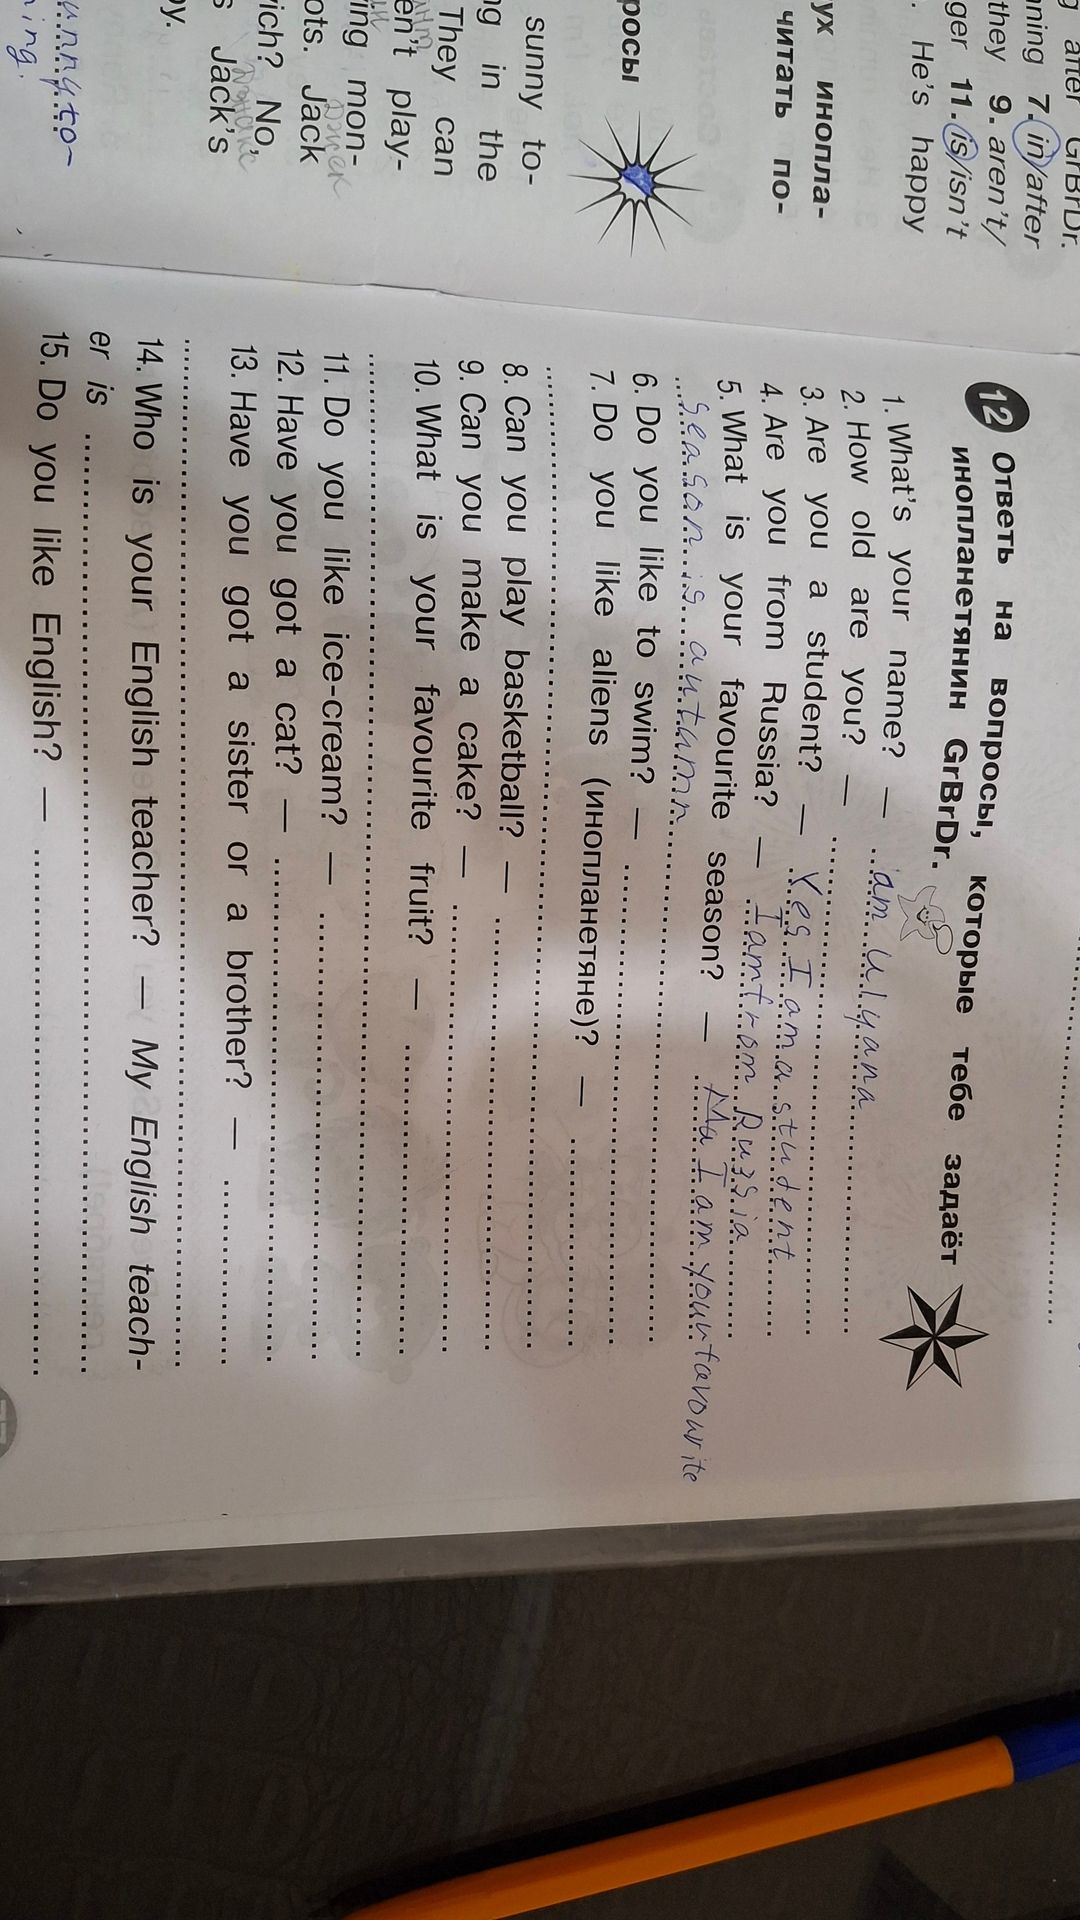 g after GrBrDr.
ning 7. in/after
they 9. aren't/
ger 11. is/isn't
. He's happy
ух инопла-
читать по-
росы
sunny to-
ng in the
They can
en't play-
ing mon-
ots. Jack
ich? No,
s Jack's
py.
unny to-
ning.
12 Ответь на вопросы, которые тебе задаёт
инопланетянин GrBrDr.
1. What's your name? — am Ulyana
2. How old are you? —
3. Are you a student? — Yes I am a student
4. Are you from Russia? — I am from Russia
5. What is your favourite season? — Ma I am your favourite
season is autumn
6. Do you like to swim? —
7. Do you like aliens (инопланетяне)? —
8. Can you play basketball? —
9. Can you make a cake? —
10. What is your favourite fruit? —
11. Do you like ice-cream? —
12. Have you got a cat? —
13. Have you got a sister or a brother? —
14. Who is your English teacher? — My English teach-
er is
15. Do you like English? —